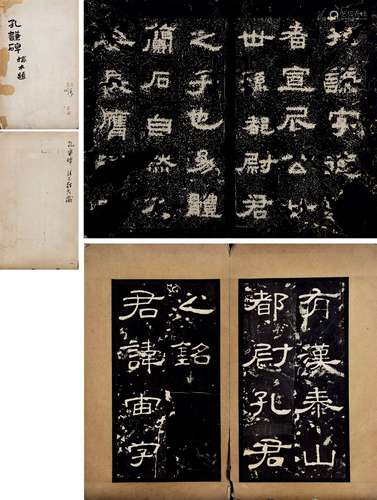 孔謙碑
孔謙字德讓
者宣尼公廿
世孫都尉君
之子也幼體
蘭石自然之
姿長膺
孔宙碑
有漢泰山
都尉孔君
之銘
君諱宙字